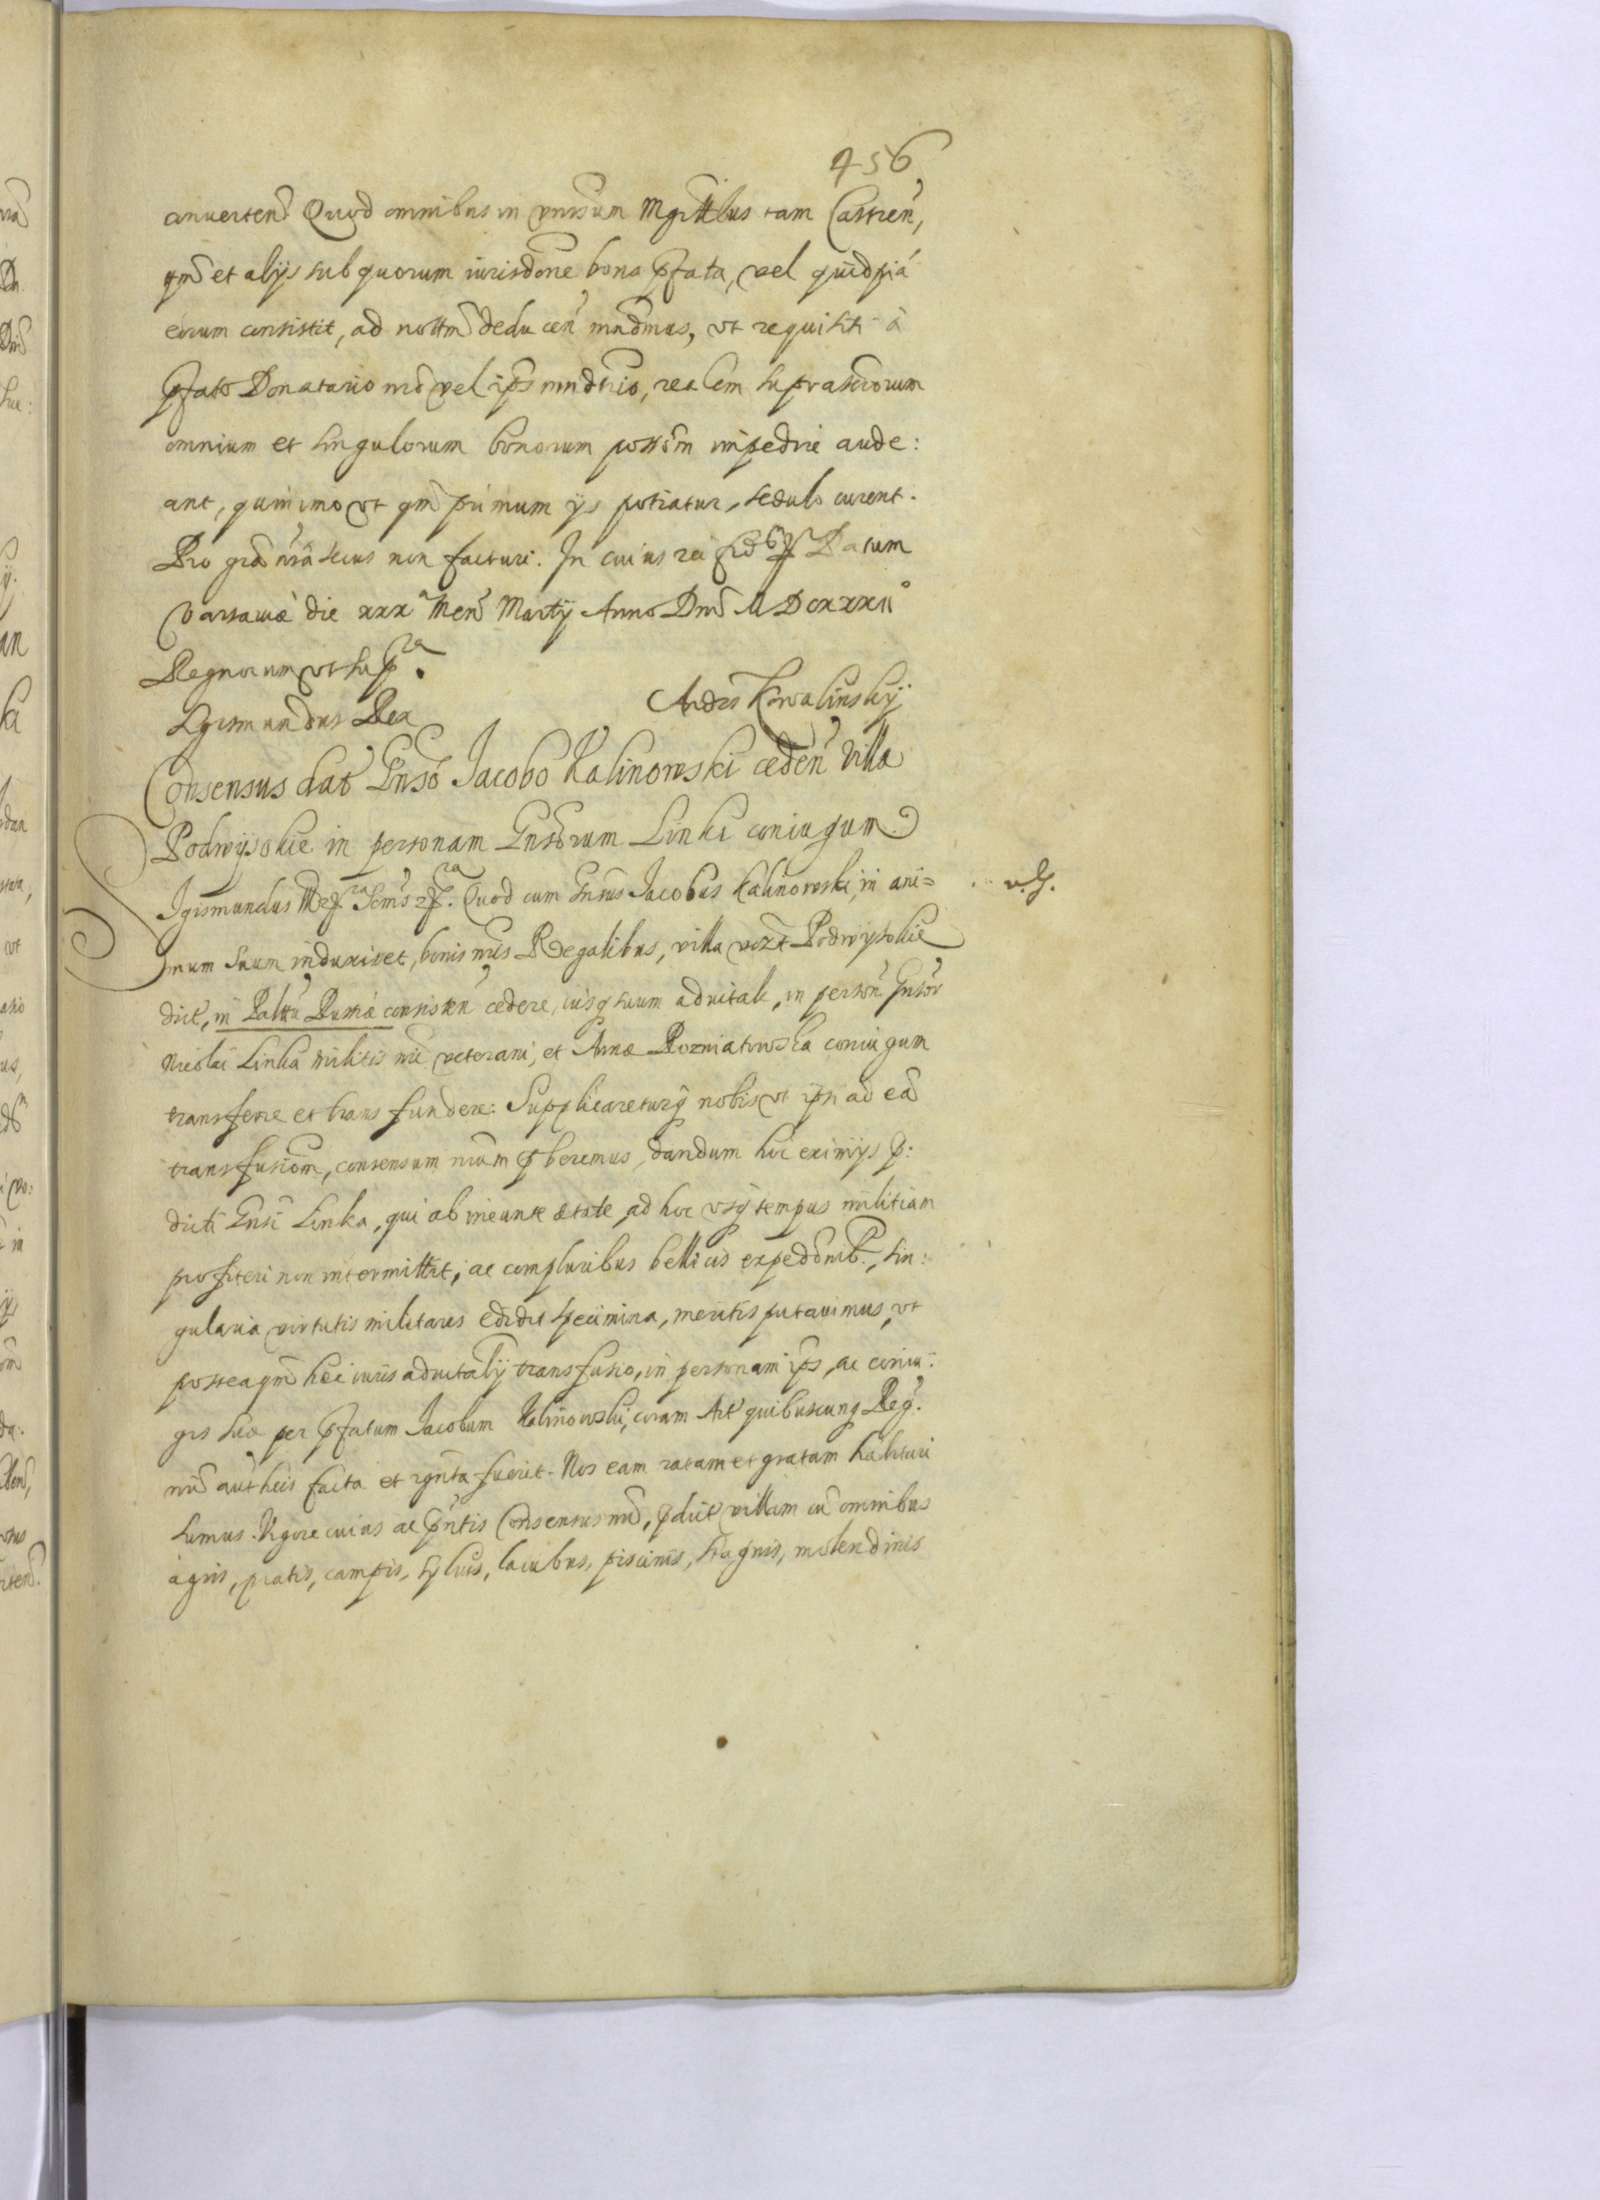 456
conuerten Quod omnibus in vnirsum Mgrttbus tam Castren,
qm et alijs sub quorum iurisdone bona pfata, vel quidpia
eorum consistit, ad notitm deducen mndmus, vt requisiti a
pfato Donatario nro vel ips mndtrio, realem suprascriorum
omnium et singulorum bonorum possom impedire aude:
ant, quinimo vt qm primum ijs potiatur, sedulo curent.
Pro gra nra secus non facturi. In cuius rei fid Datum
Varsauiæ die xxx a Men Martij Anno Dni MDCXXXII o
Regnorum vt sup ra.
Sigismundus Rex
Andrs Kowalinskij
Consensus dat Gnso Jacobo Kalinowski ceden Villa
Podwijsokie in personam Gnsorum Linki coniugum
Sigismundus Quod cum Gnsus Jacobus Kalinowski, in ani=
v. G.
mum suum induxisset, bonis nris Regalibus, villa vizt Podwysokie
dict, in Palttu Rusiæ consisten cedere, iusq suum aduitale, in person Gnsor
Nicolai Linka militis nri veterani, et Annæ Pozniatowska coniugum
transferre et transfundere: Supplicareturq nobis vt ipsi ad ea
transfusionem, consensum nrum pberemus, dandum hoc eximijs p:
dicti Gnsi Linka, qui ab ineunte ætate, ad hoc vsq tempus militiam
profiteri non intermittit, ac compluribus bellicis expedonib., sin:
gularia virtutis militaris edidit specimina, meritis putauimus, vt
posteaqm hæc iuris aduitalij transfusio, in personam ips, ac coniu:
gis suæ per pfatum Jacobum Kalinowski, coram Act quibuscunq Reg.
nri authcis facta et rgnta fuerit. Nos eam ratam et gratam habituri
sumus. Vigore cuius ac pntis Consensus nri, pdict villam cu omnibus
agris, pratis, campis, syluis, lacubus, piscinis, stagnis, molendinis